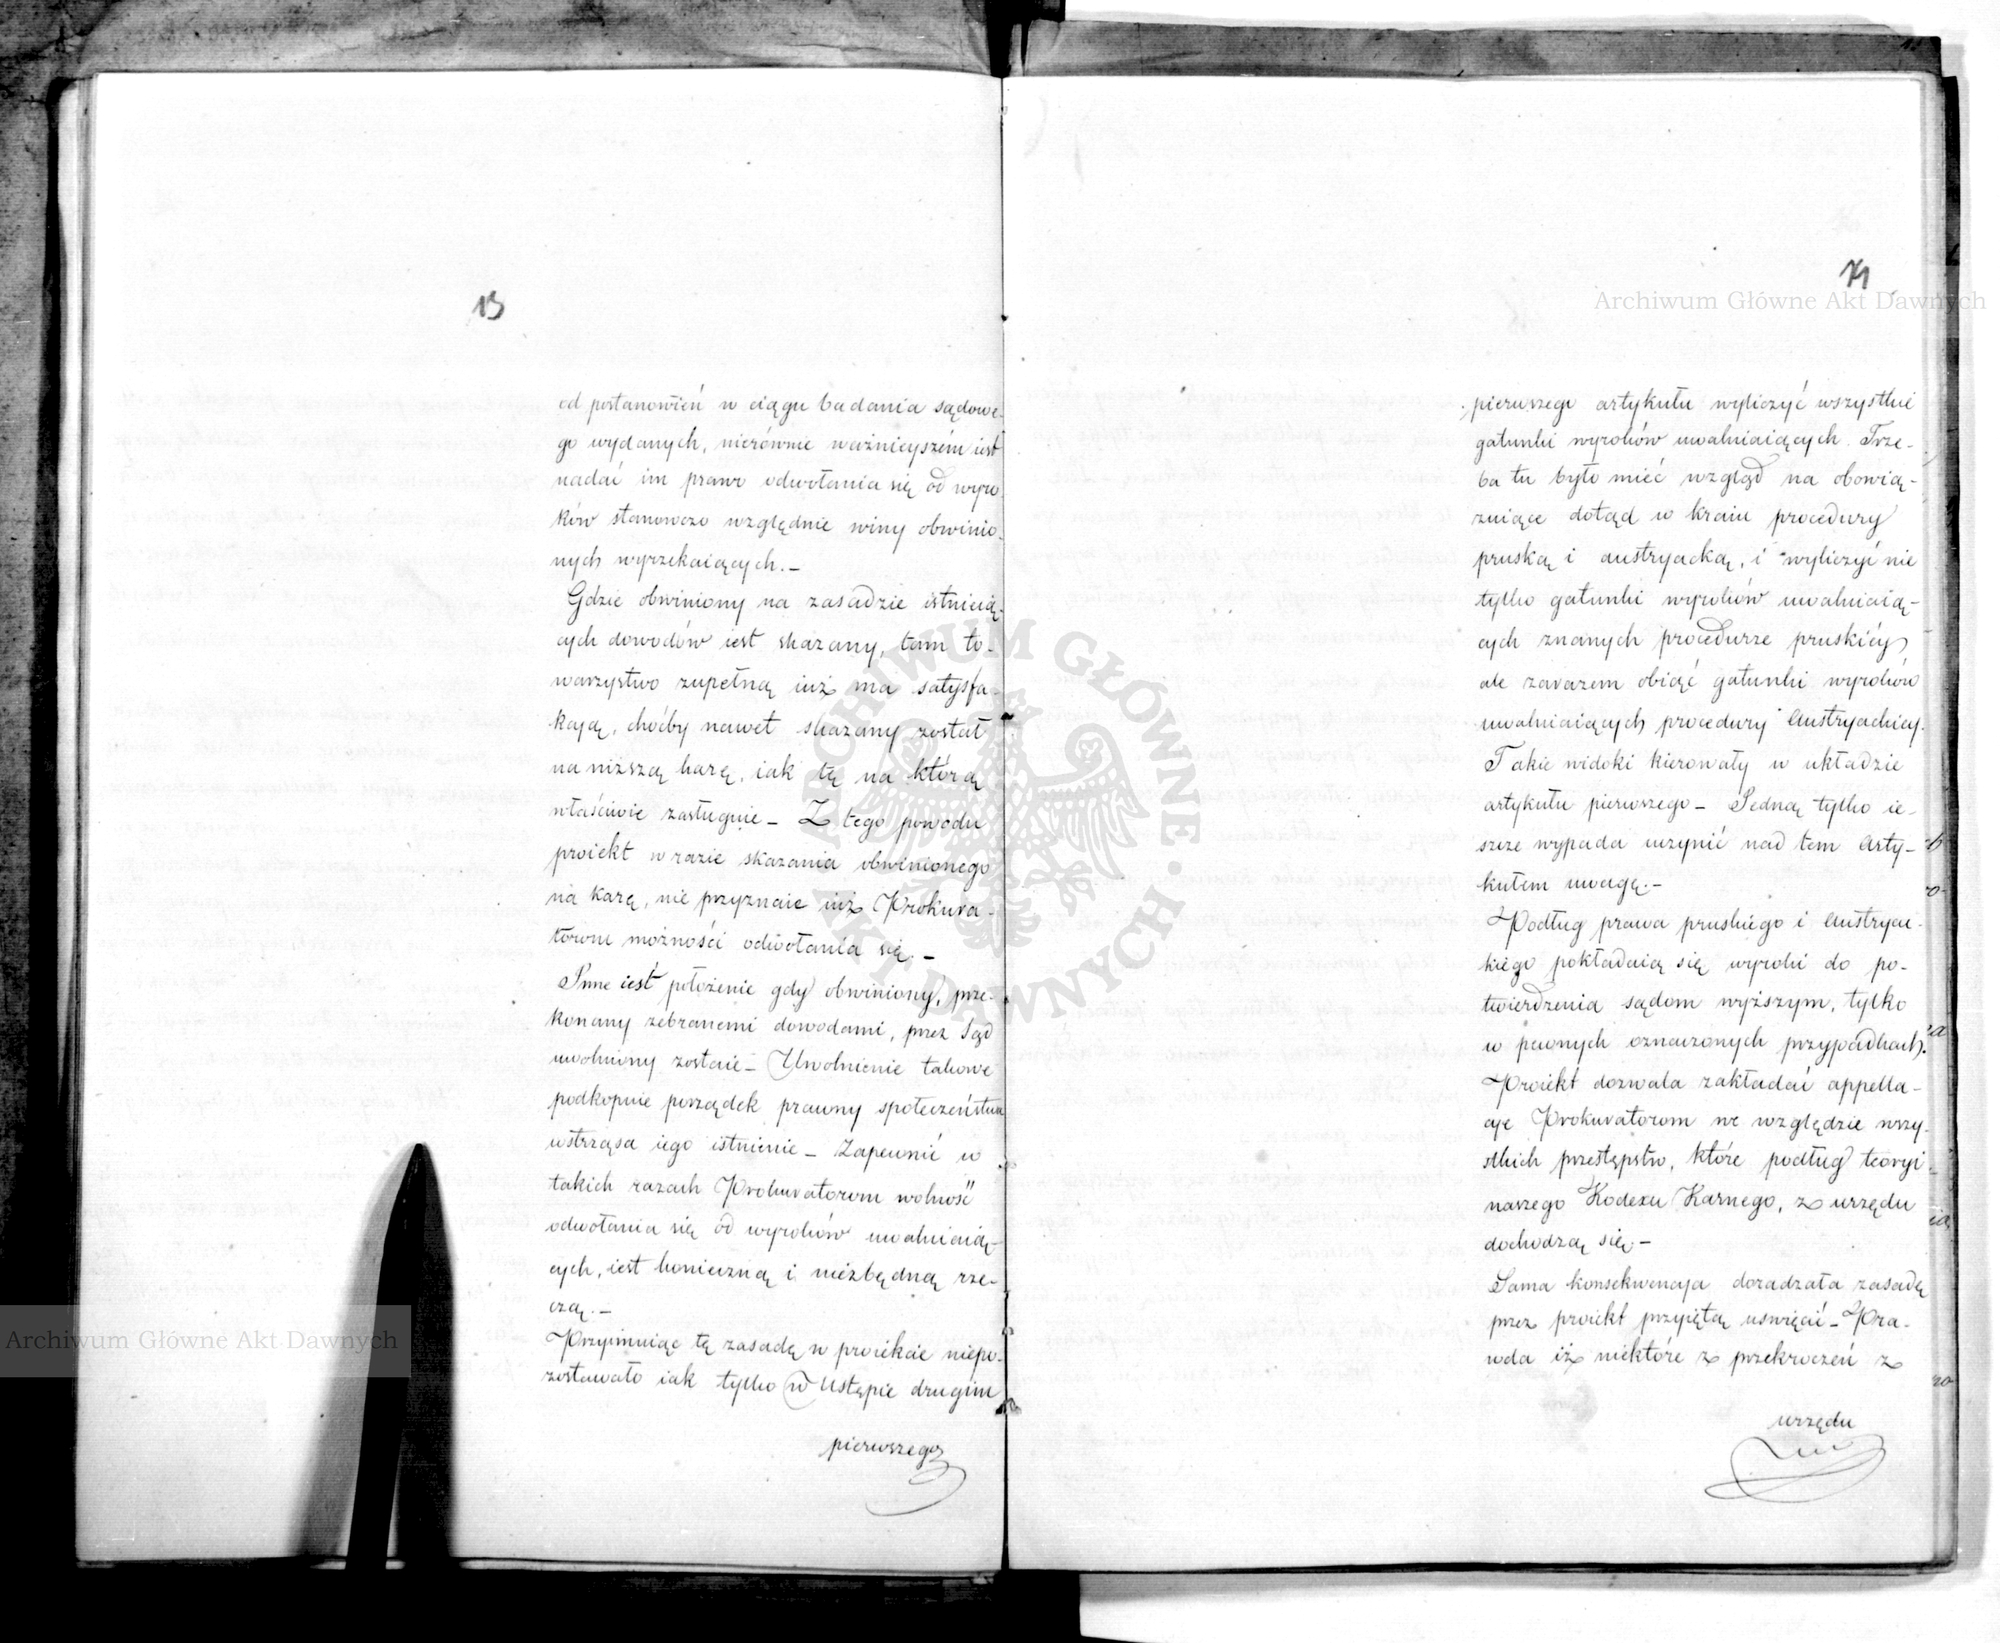 13
od postanowień w ciągu badania sądowe-
go wydanych, nierównie ważnieyszém iest
nadać im prawo odwołania się od wyro
ków stanowczo względnie winy obwinio-
nych wyrzekaiących.-
Gdzie obwiniony na zasadzie istnieią-
cych dowodów iest skazany, tam to-
warzystwo zupełną iuż ma satysfa-
kcyą, choćby nawet skazany został
na niższą karę, iak tę na którą
właściwie zasługuie - Z tego powodu
proiekt w razie skazania obwinionego
na karę, nie przyznaie iuż Prokura-
torowi możności odwołania się.-
Inne iest położenie gdy obwiniony, prze-
konany zebranemi dowodami, przez Sąd
uwolniony zostaie - Uwolnienie takowe
podkopuie porządek prawny społeczeństwa
wstrząsa iego istnienie - Zapewnić w
takich razach Prokuratorom wolność
odwołania się od wyroków uwalniaią-
cych, iest konieczną i niezbędną rze-
czą.-
Przyimuiąc tę zasadę w proiekcie niepo-
zostawało iak tylko w Ustępie drugim
pierwszego
pierwszego artykułu wyliczyć wszystkie
gatunki wyroków uwalniaiących. Trze-
ba tu było mieć wzgląd na obowią-
zuiące dotąd w kraiu procedury
pruską i austryacką, i wyliczyć nie
tylko gatunki wyroków uwalniaią-
cych znanych procedurze pruskiéy
ale zarazem obiąć gatunki wyroków
uwalniaiących procedury Austryackiey.
Takie widoki kierowały w układzie
artykułu pierwszego - Jedną tylko ie-
szcze wypada uczynić nad tem Arty-
kułem uwagę.-
Podług prawa pruskiego i Austryac-
kiego pokładaią się wyroki do po-
twierdzenia sądom wyższym, tylko
w pewnych oznaczonych przypadkach.
Proiekt dozwala zakładać appella-
cye Prokuratorom we względzie wszy-
stkich przestępstw, które podług teoryi
naszego Kodexu Karnego, z urzędu
dochodzą się.-
Sama konsekwencya doradzała zasadę
przez proiekt przyiętą uświęcić - Pra-
wda iż niektóre z przekroczeń z
urzędu
Archiwum Główne Akt Dawnych
Archiwum Główne Akt Dawnych
ARCHIWUM GŁÓWNE AKT DAWNYCH